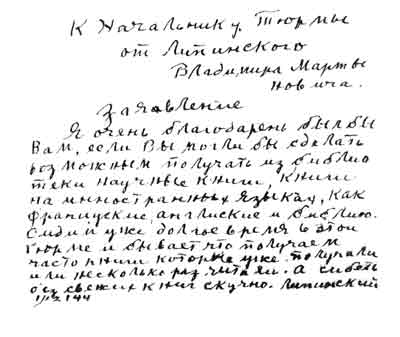 К Начальнику Тюрмы
от Липинского
Владимира Марты
новича.
Заявление
Я очень благодарень был бы
Вам, если Вы могли бы сделать
возможным получать из библио
теки научные книги, книги
на иностранных языках, как
француские, англиские и библию.
Сидим уже долгое время в этой
тюрме и бывает что получаем
часто книги которые уже получали
или несколько раз читали. А сидеть
без свежих книг скучно. Липинский